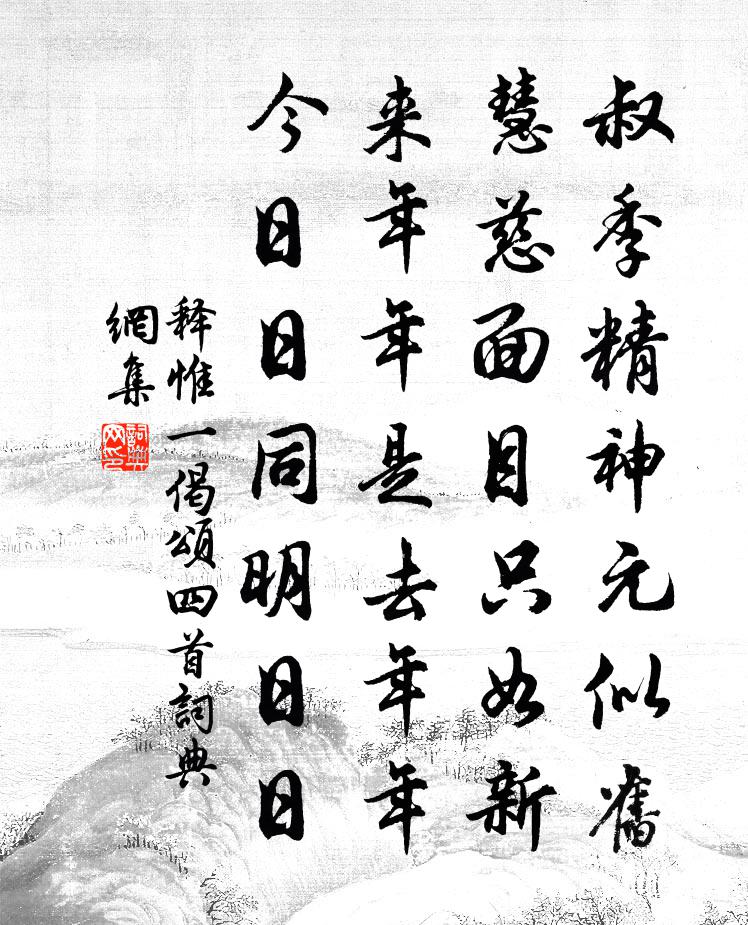 叔季精神元似舊
慧慈面目只如新
来年年是去年年
今日日同明日日
释惟一偈頌四首詞典
網集
詞典網印